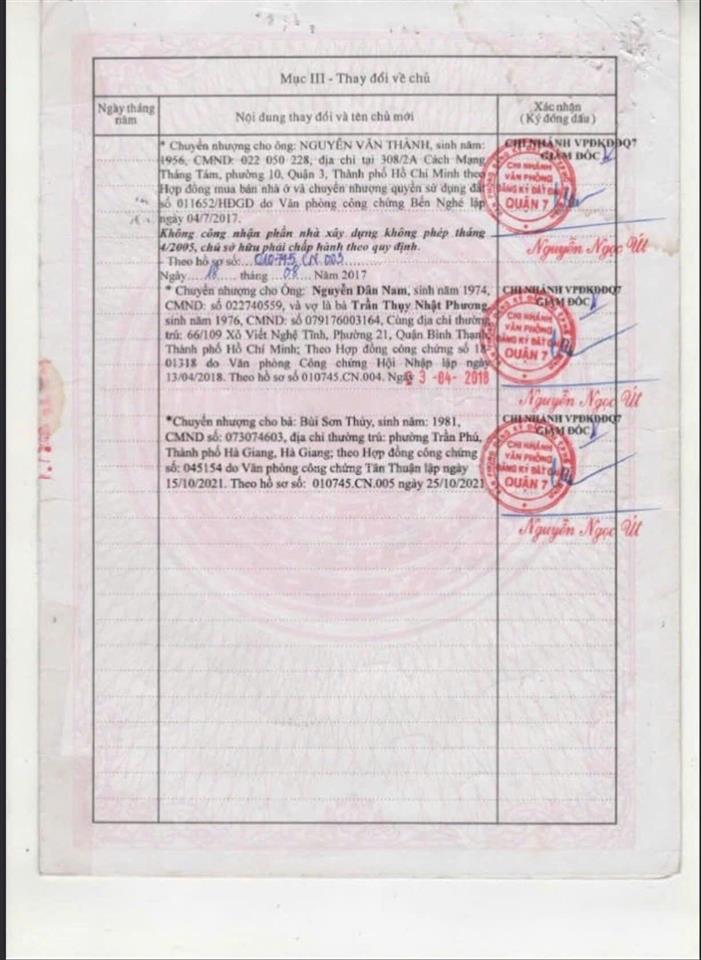 Mục III - Thay đổi về chủ
Ngày tháng năm
Nội dung thay đổi và tên chủ mới
Xác nhận
(Ký đóng dấu)
* Chuyển nhượng cho ông: NGUYỄN VĂN THÀNH, sinh năm:
1956, CMND: 022 050 228, địa chỉ tại 308/2A Cách Mạng
Tháng Tám, phường 10, Quận 3, Thành phố Hồ Chí Minh theo
Hợp đồng mua bán nhà ở và chuyển nhượng quyền sử dụng đất
số 011652/HĐGD do Văn phòng công chứng Bến Nghé lập
ngày 04/7/2017.
Không công nhận phần nhà xây dựng không phép tháng
4/2005, chủ sở hữu phải chấp hành theo quy định.
- Theo hồ sơ số: 010745.CN.003
Ngày 18 tháng 08 Năm 2017
CHI NHÁNH VPĐKĐĐQ7
GIÁM ĐỐC
CHI NHÁNH
VĂN PHÒNG
ĐĂNG KÝ ĐẤT ĐAI
QUẬN 7
Nguyễn Ngọc Út
* Chuyển nhượng cho Ông: Nguyễn Dân Nam, sinh năm 1974,
CMND: số 022740559, và vợ là bà Trần Thụy Nhật Phương,
sinh năm 1976, CMND: số 079176003164, Cùng địa chỉ thường
trú: 66/109 Xô Viết Nghệ Tĩnh, Phường 21, Quận Bình Thạnh
Thành phố Hồ Chí Minh; Theo Hợp đồng công chứng số 18-
01318 do Văn phòng Công chứng Hội Nhập lập ngày
13/04/2018. Theo hồ sơ số 010745.CN.004. Ngày 3 -04- 2018
CHI NHÁNH VPĐKĐĐQ7
GIÁM ĐỐC
CHI NHÁNH
VĂN PHÒNG
ĐĂNG KÝ ĐẤT ĐAI
QUẬN 7
Nguyễn Ngọc Út
*Chuyển nhượng cho bà: Bùi Sơn Thủy, sinh năm: 1981,
CMND số: 073074603, địa chỉ thường trú: phường Trần Phú,
Thành phố Hà Giang, Hà Giang; theo Hợp đồng công chứng
số: 045154 do Văn phòng công chứng Tân Thuận lập ngày
15/10/2021. Theo hồ sơ số: 010745.CN.005 ngày 25/10/2021
CHI NHÁNH VPĐKĐĐQ7
GIÁM ĐỐC
CHI NHÁNH
VĂN PHÒNG
ĐĂNG KÝ ĐẤT ĐAI
QUẬN 7
Nguyễn Ngọc Út